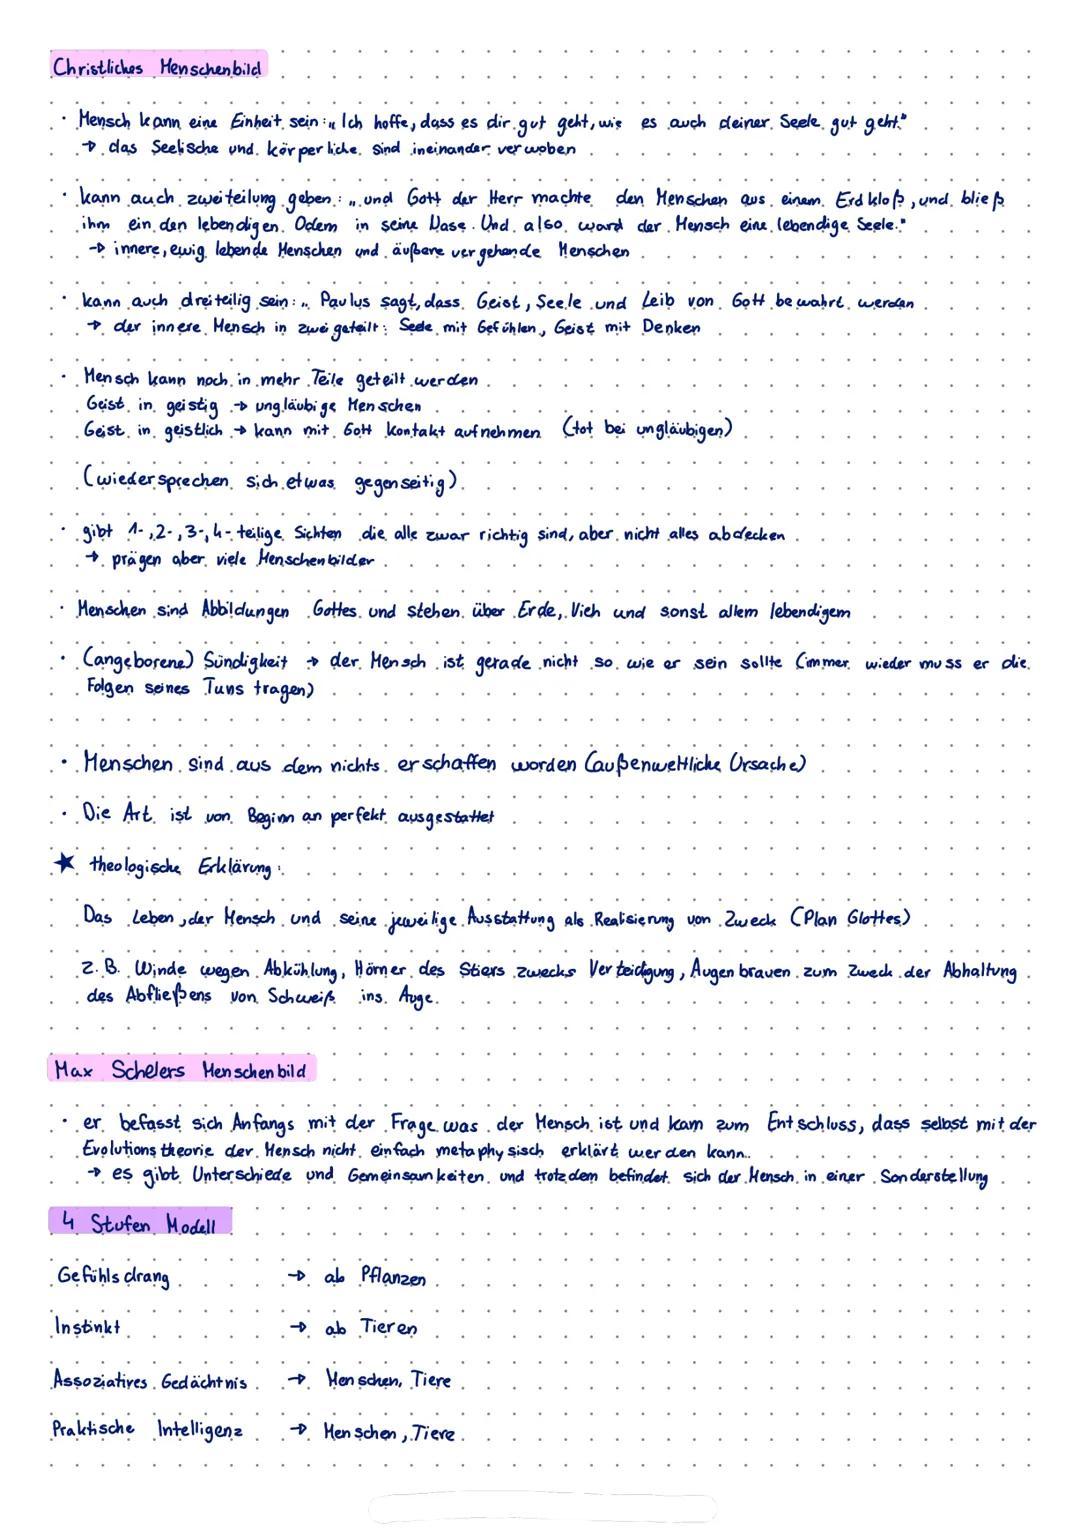 Christliches Menschenbild
· Mensch kann eine Einheit sein: „Ich hoffe, dass es dir gut geht, wie es auch deiner Seele gut geht."
→ das Seelische und körperliche sind ineinander verwoben
· kann auch zweiteilung geben: „und Gott der Herr machte den Menschen aus einem Erdkloß, und bließ
ihm ein den lebendigen Odem in seine Nase. Und also ward der Mensch eine lebendige Seele."
→ innere, ewig lebende Menschen und äußere vergehende Menschen
· kann auch dreiteilig sein: „ Paulus sagt, dass Geist, Seele und Leib von Gott bewahrt werden
→ der innere Mensch in zwei geteilt: Seele mit Gefühlen, Geist mit Denken
· Mensch kann noch in mehr Teile geteilt werden
Geist in geistig → ungläubige Menschen
Geist in geistlich → kann mit Gott Kontakt aufnehmen (tot bei ungläubigen)
(wiedersprechen sich etwas gegenseitig)
· gibt 1-, 2-, 3-, 4-teilige Sichten die alle zwar richtig sind, aber nicht alles abdecken
→ prägen aber viele Menschenbilder
· Menschen sind Abbildungen Gottes und stehen über Erde, Vieh und sonst allem lebendigem
· (angeborene) Sündigkeit → der Mensch ist gerade nicht so wie er sein sollte (immer wieder muss er die
Folgen seines Tuns tragen)
· Menschen sind aus dem nichts erschaffen worden (außenweltliche Ursache)
· Die Art ist von Beginn an perfekt ausgestattet
★ theologische Erklärung:
Das Leben, der Mensch und seine jeweilige Ausstattung als Realisierung von Zweck (Plan Gottes)
Z.B. Winde wegen Abkühlung, Hörner des Stiers zwecks Verteidigung, Augenbrauen zum Zweck der Abhaltung
des Abfließens von Schweiß ins Auge.
Max Schelers Menschenbild
· er befasst sich Anfangs mit der Frage was der Mensch ist und kam zum Entschluss, dass selbst mit der
Evolutionstheorie der Mensch nicht einfach metaphysisch erklärt werden kann.
→ es gibt Unterschiede und Gemeinsamkeiten und trotzdem befindet sich der Mensch in einer Sonderstellung
4 Stufen Modell
Gefühlsdrang → ab Pflanzen
Instinkt → ab Tieren
Assoziatives Gedächtnis → Menschen, Tiere
Praktische Intelligenz → Menschen, Tiere